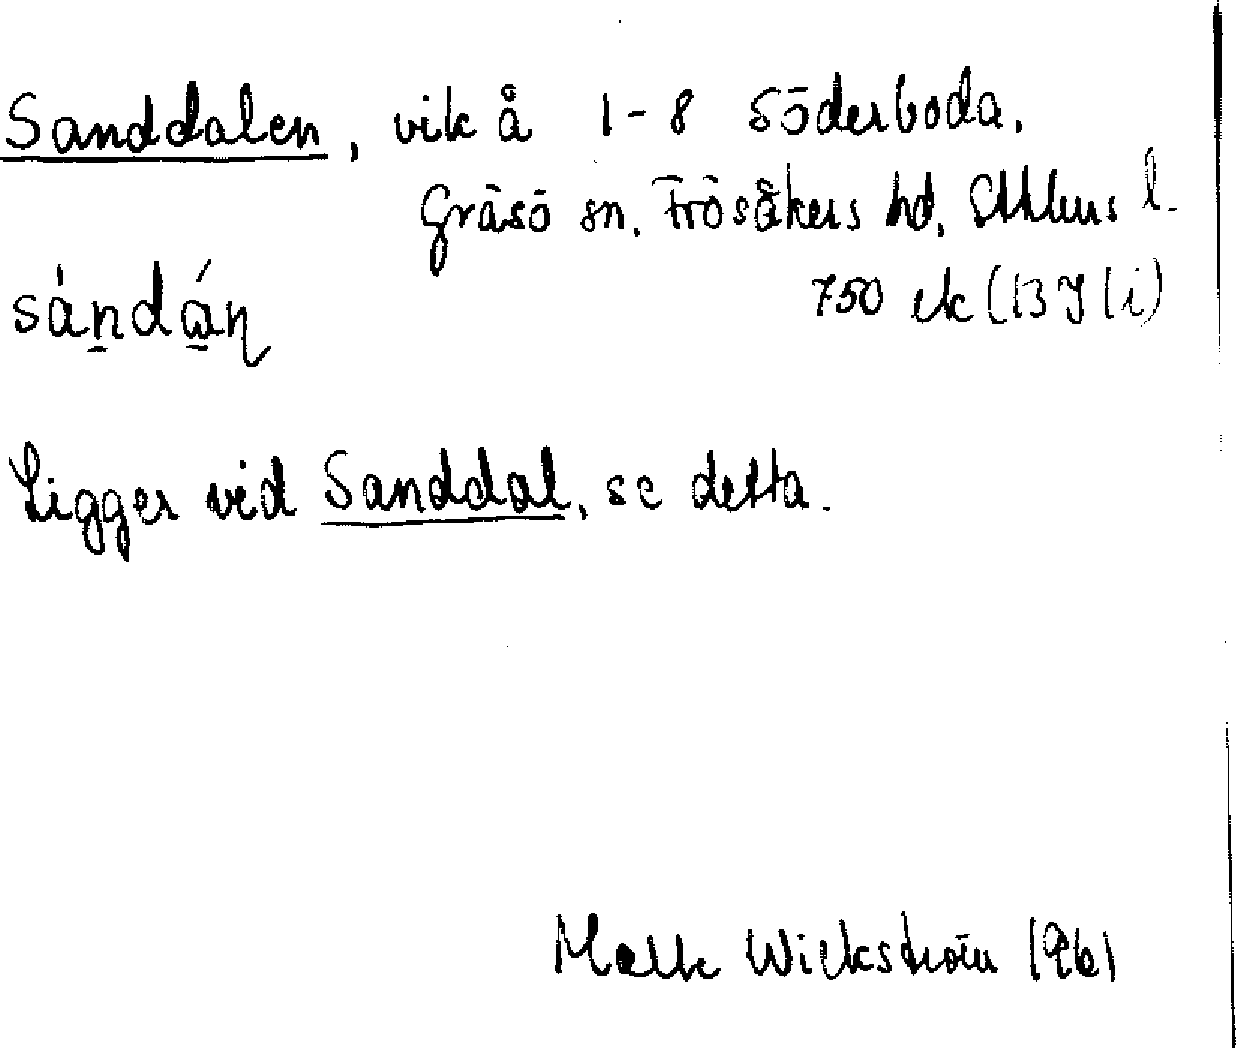 Sanddalen, vik å 1-8 Söderboda.
Gräsö sn. Frösåkers hd, Sthlms l.
sándán
750 ek (13 I 1 i)
Ligger vid Sanddal, se detta.
Malte Wickström 1961